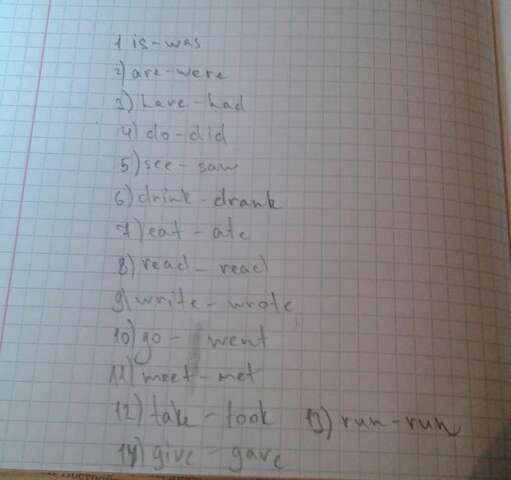 1 is - was
2) are - were
3) have - had
4) do - did
5) see - saw
6) drink - drank
7) eat - ate
8) read - read
9) write - wrote
10) go - went
11) meet - met
12) take - took 13) run - run
14) give - gave